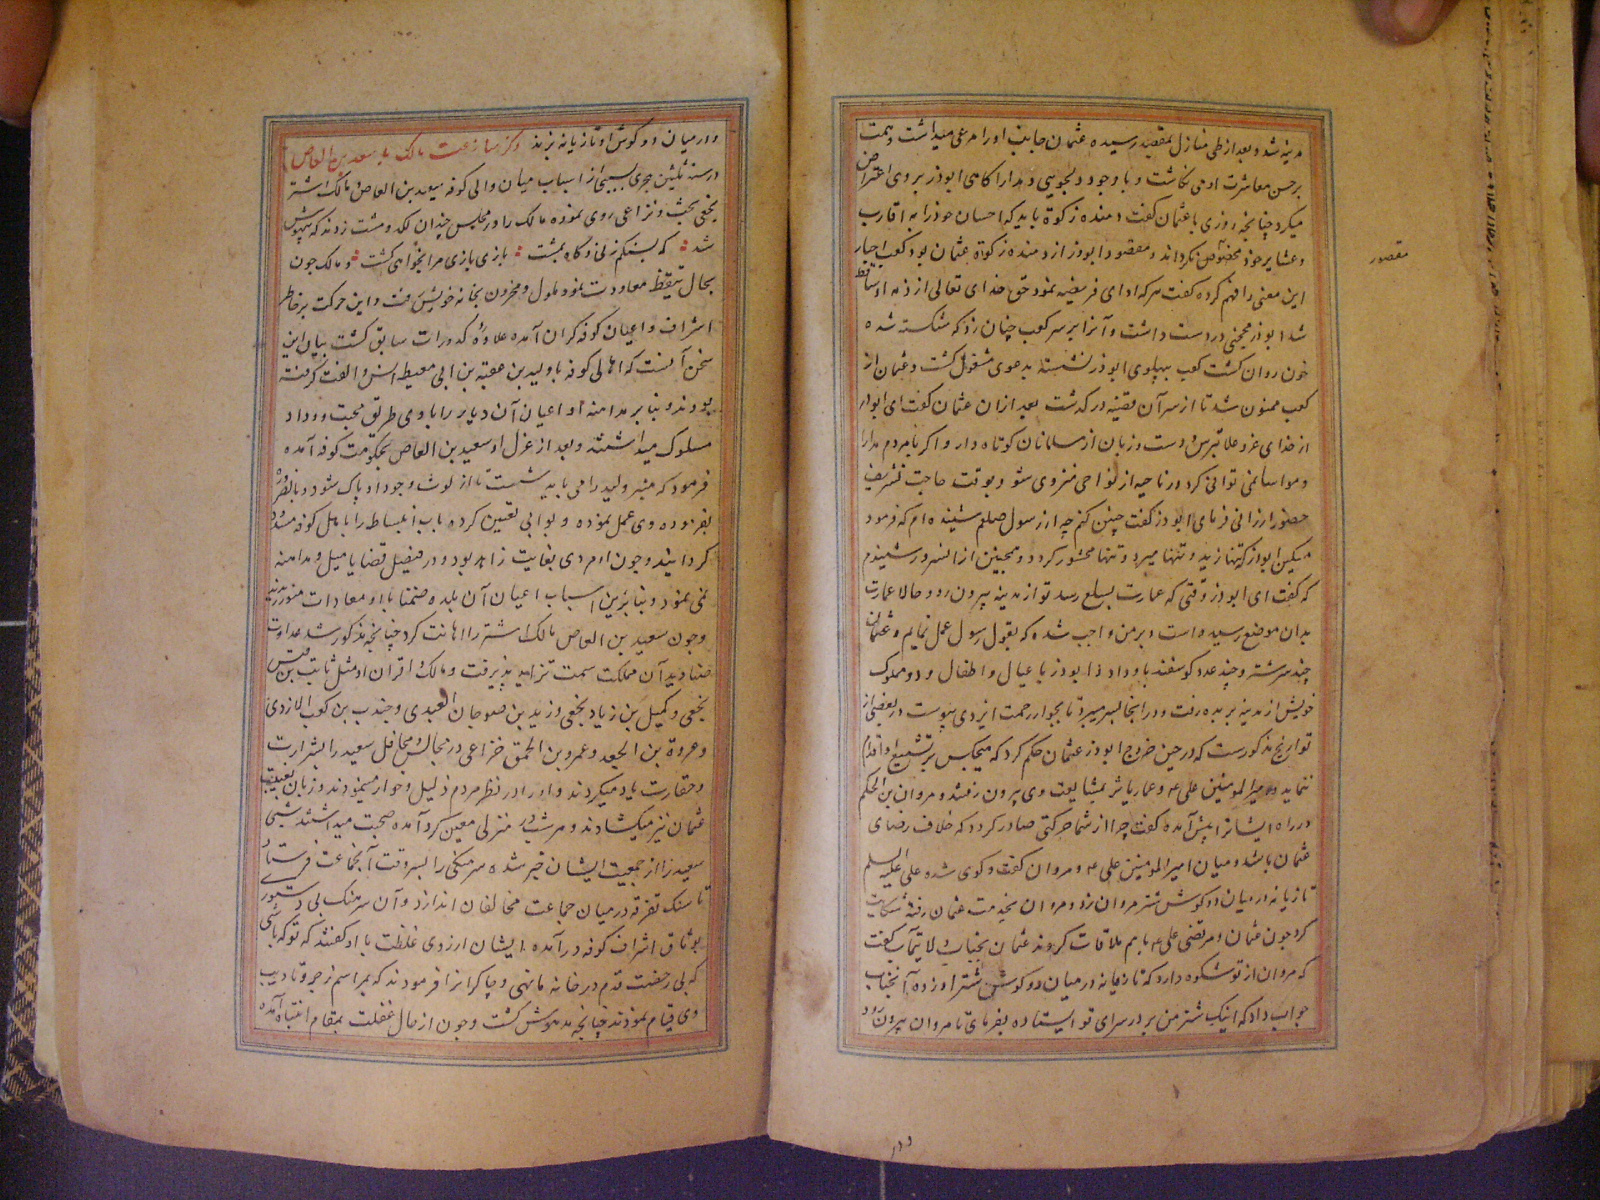 مدینه شد و بعد از طی منازل بمقصد رسیده عثمان جانب او را مرعی میداشت و همت
بر حسن معاشرت او می کماشت و با وجود دلجویی و مدارا کاهی ابوذر بر وی اعتراض
میکرد چنانچه روزی با عثمان کفت دهنده زکوة باید که احسان خود را به اقارب
و عشایر خود مخصوص نکرداند و مقصود ابوذر از دهنده زکوة عثمان بود کعب احبار
مقصور
این معنی را فهم کرده کفت هر که ادای فریضه نمود حق خدای تعالی از ذمه او ساقط
شد ابوذر محجنی در دست داشت و آنرا بر سر کعب چنان زد که شکسته شده
خون روان کشت کعب بپهلوی ابوذر نشسته بدعوی مشغول کشت و عثمان از
کعب ممنون شد تا از سر آن قضیه در کذشت بعد ازان عثمان کفت ای ابوذر
از خدای عز و علا بترس و دست و زبان از مسلمانان کوتاه دار و اکر با مردم مدارا
و مواسا نمی توانی کرد در ناحیه از نواحی منزوی شو و بوقت حاجت تشریف
حضور ارزانی فرمای ابوذر کفت چنین کنم چه از رسول صلعم شنیده ام که فرمود
مسکین ابوذر که تنها زید و تنها میرد و تنها محشور کردد و همچنین از آنسرور شنیدم
که کفت ای ابوذر وقتی که عمارت بسلع رسد تو از مدینه بیرون رو و حالا عمارت
بدان موضع رسیده است و بر من واجب شده که بقول رسول عمل نمایم و عثمان
چند سر شتر و چند عدد کوسفند باو داد و ابوذر با عیال و اطفال و دو مملوک
خویش از مدینه بربده رفت و در انجا بسر میبرد تا بجوار رحمت ایزدی پیوست در بعضی از
تواریخ مذکورست که در حین خروج ابوذر عثمان حکم کرد که هیچکس بر تشییع او اقدام
ننماید و امیر المومنین علی ع و عمار یاسر بمشایعت وی بیرون رفتند و مروان بن الحکم
در راه ایشانرا پیش آمده کفت چرا از شما حرکتی صادر کردد که خلاف رضای
عثمان باشد و میان امیر المومنین علی ع و مروان کفت و کوی شده علی علیه السلم
تازیانه در میان دو کوش شتر مروان زد و مروان بخدمت عثمان رفته شکایت
کرد چون عثمان و مرتضی علی ع با هم ملاقات کردند عثمان بجناب ولایتمآب کفت
که مروان از تو شکوه دارد که تازیانه در میان دو کوش شتر او زده آنجناب
جواب داد که اینک شتر من بر در سرای تو ایستاده بفرمای تا مروان بیرون رود
و در
و در میان دو کوش او تازیانه بزند ذکر منازعت مالک با سعید بن العاص
در سنه ثلثین هجری بسببی از اسباب میان والی کوفه سعید بن العاص و مالک اشتر
نخعی بحث و نزاعی روی نموده مالک را در مجلس چندان لکد و مشت زدند که بیهوش
شد که بسنکم زنی و کاه بمشت بازی بازی مرا بخواهی کشت و مالک چون
بحال تیقظ معاودت نمود ملول و محزون بخانه خویش رفت و این حرکت بر خاطر
اشراف و اعیان کوفه کران آمده علاوهٔ کدورات سابق کشت بیان این
سخن آنست که اهالی کوفه با ولید بن عقبه بن ابی معیط انس و الفت کرفته
بودند و بنا بر مداهنه او اعیان آن دیار را با وی طریق محبت و وداد
مسلوک میداشتند و بعد از عزل او سعید بن العاص بحکومت کوفه آمده
فرمود که منبر ولید را می باید شست تا از لوث وجود او پاک شود و بالضروره
بفرموده وی عمل نموده و بوابی تعیین کرده باب انبساط را با اهل کوفه مسدود
کردانید و چون او مردی بغایت زاهد بود و در فیصل قضایا میل و مداهنه
نمی نمود و بنا برین اسباب اعیان آن بلده ضمنا با او معادات می ورزیدند
و چون سعید بن العاص مالک اشتر را اهانت کرد چنانچه مذکور شد عداوت
صنادید آن مملکت سمت تزاید پذیرفت و مالک و اقران او مثل ثابت بن قیس
نخعی و کمیل بن زیاد نخعی و زید بن صوحان العبدی و جندب بن کعب الازدی
و عروة بن الجعد و عمرو بن الحمق خزاعی در مجالس و محافل سعید را بشرارت
و حقارت یاد میکردند و او را در نظر مردم ذلیل و خوار مینمودند و زبان بغیبت
عثمان نیز میکشادند و هر شب در منزلی معین کرد آمده صحبت میداشتند شبی
سعید را از جمعیت ایشان خبر شده سرهنکی را بسر وقت آنجماعت فرستاد
تا سنک تفرقه در میان جماعت مخالفان اندازد و آن سرهنک بی دستور
بوثاق اشراف کوفه در آمده ایشان ازروی غلظت با او کفتند که تو که باشی
که بی رخصت قدم در خانه ما نهی و چاکرانرا فرمودند که بمراسم زجر و تادیب
وی قیام نمودند چنانچه مدهوش کشت و چون از حال غفلت بمقام انتباه آمده